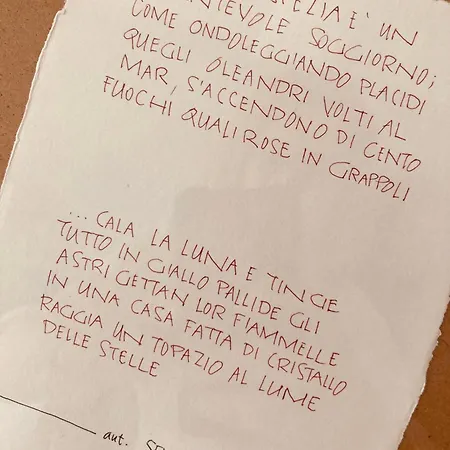 UN
SOGGIORNO;
COME ONDOLEGGIANDO PLACIDI
QUEGLI OLEANDRI VOLTI AL
MAR, S'ACCENDONO DI CENTO
FUOCHI QUALI ROSE IN GRAPPOLI
... CALA LA LUNA E TINGE
TUTTO IN GIALLO PALLIDE GLI
ASTRI GETTAN LOR FIAMMELLE
IN UNA CASA FATTA DI CRISTALLO
RAGGIA UN TOPAZIO AL LUME
DELLE STELLE
aut.